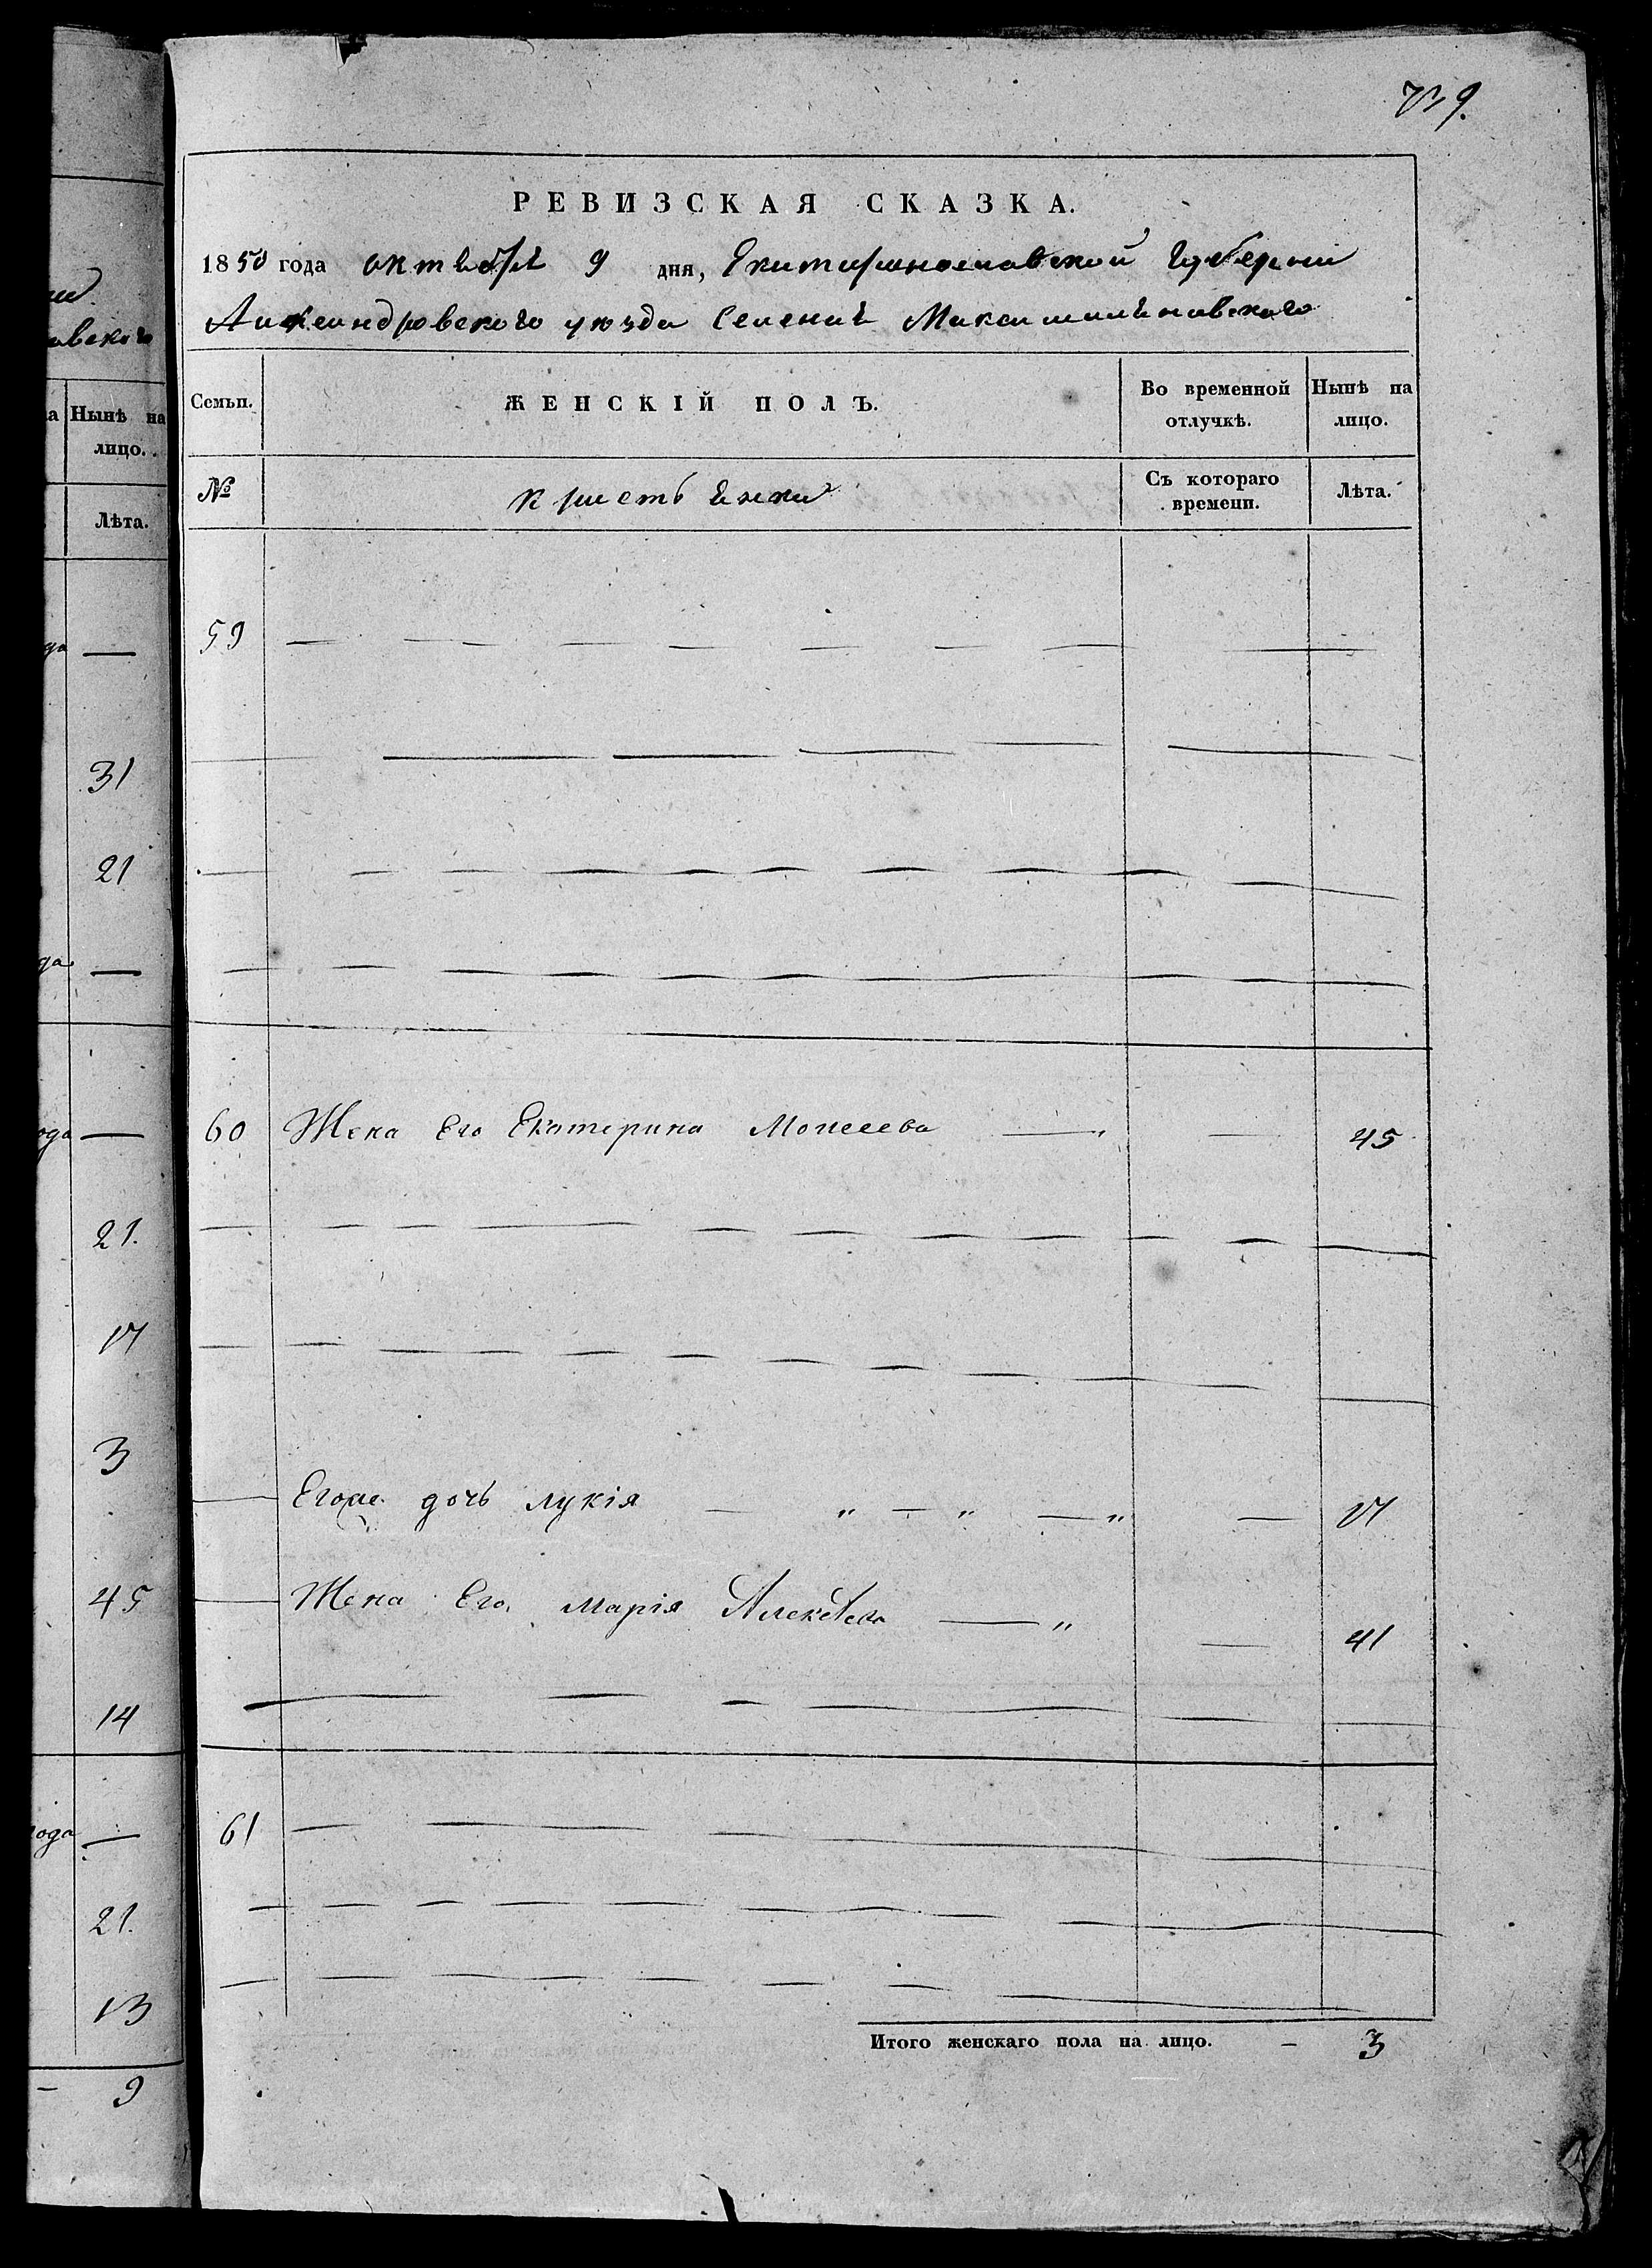 739.
ши.
авского
на Нынѣ на
лицо.
Лѣта.
да —
31
21
да —
ода —
21.
17
3
45
14
года —
21.
13
— 9
РЕВИЗСКАЯ СКАЗКА.
1850 года октября 9 дня, Екатеринославской Губерніи
Александровского уѣзда Селенія Максимильяновского
Семьи. ЖЕНСКІЙ ПОЛЪ. Во временной отлучкѣ. Нынѣ на лицо.
№ Крестьянки Съ котораго времени. Лѣта.
59 — — — — — — — —
60 Жена Его Екатерина Моисеева — — 45
Егоже дочь Лукія — „ — „ — „ — 17
Жена Его Марія Алексѣева — „ — 41
61 — — — —
Итого женскаго пола на лицо. — 3